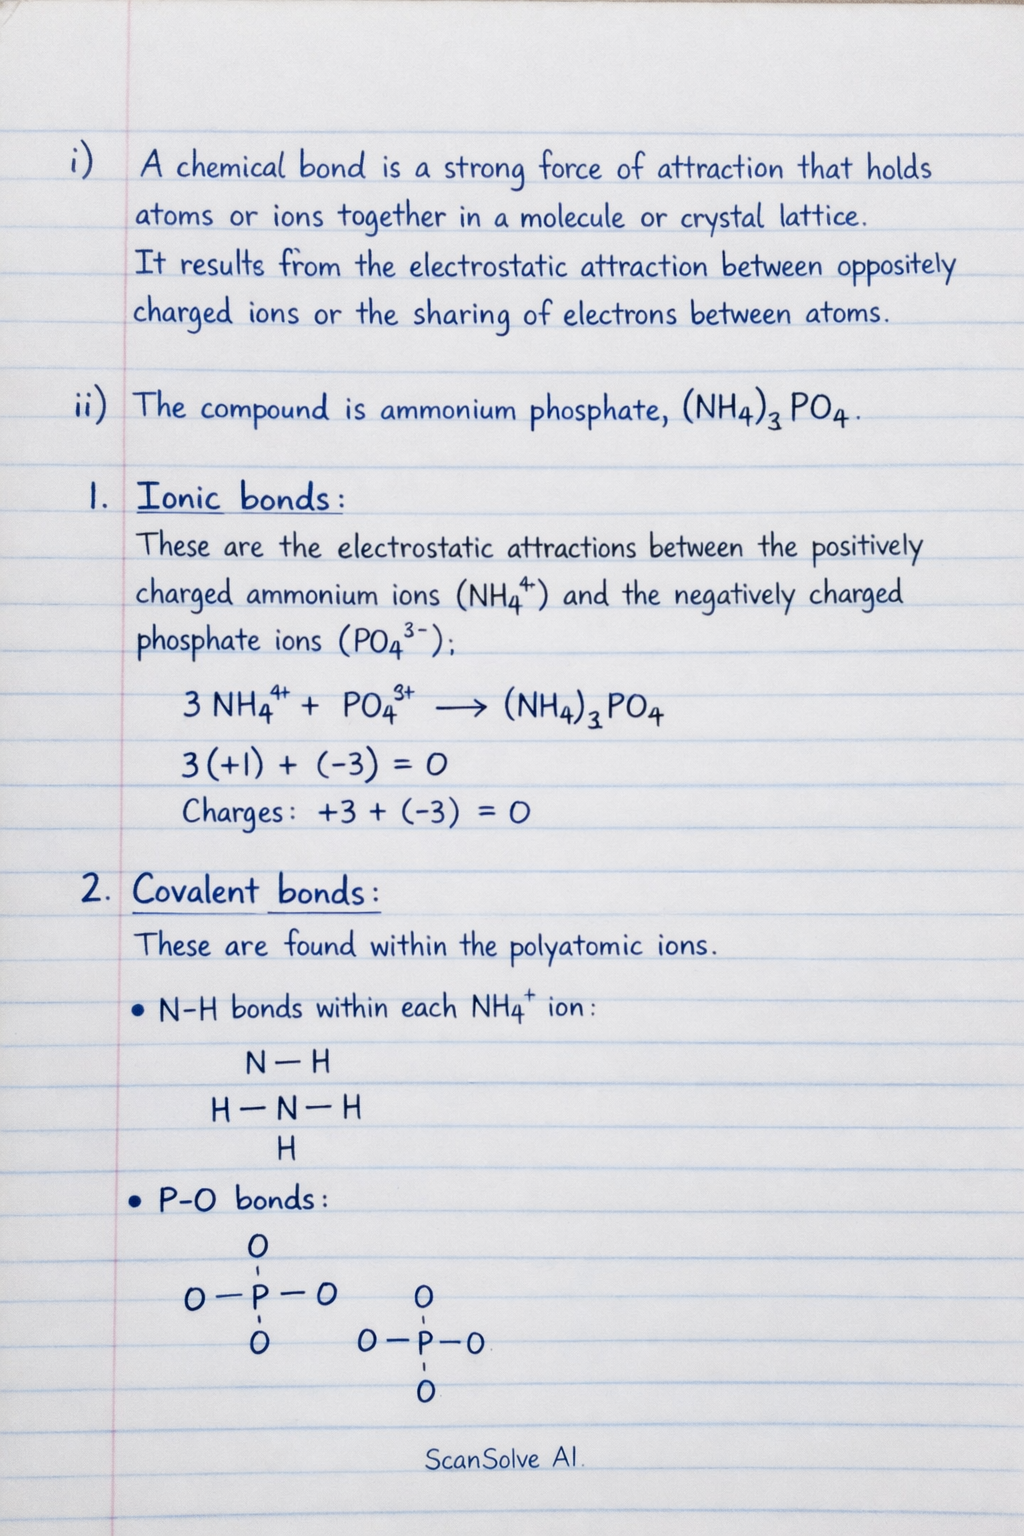 i) A chemical bond is a strong force of attraction that holds
atoms or ions together in a molecule or crystal lattice.
It results from the electrostatic attraction between oppositely
charged ions or the sharing of electrons between atoms.
ii) The compound is ammonium phosphate, (NH₄)₃ PO₄.
1. Ionic bonds:
These are the electrostatic attractions between the positively
charged ammonium ions (NH₄⁴⁺) and the negatively charged
phosphate ions (PO₄³⁻);
3 NH₄⁴⁺ + PO₄³⁺ ⟶ (NH₄)₃PO₄
3(+1) + (-3) = 0
Charges: +3 + (-3) = 0
2. Covalent bonds:
These are found within the polyatomic ions.
• N-H bonds within each NH₄⁺ ion:
N — H
H — N — H
H
• P-O bonds:
O
O — P — O
O
O
O — P — O
O
ScanSolve AI.